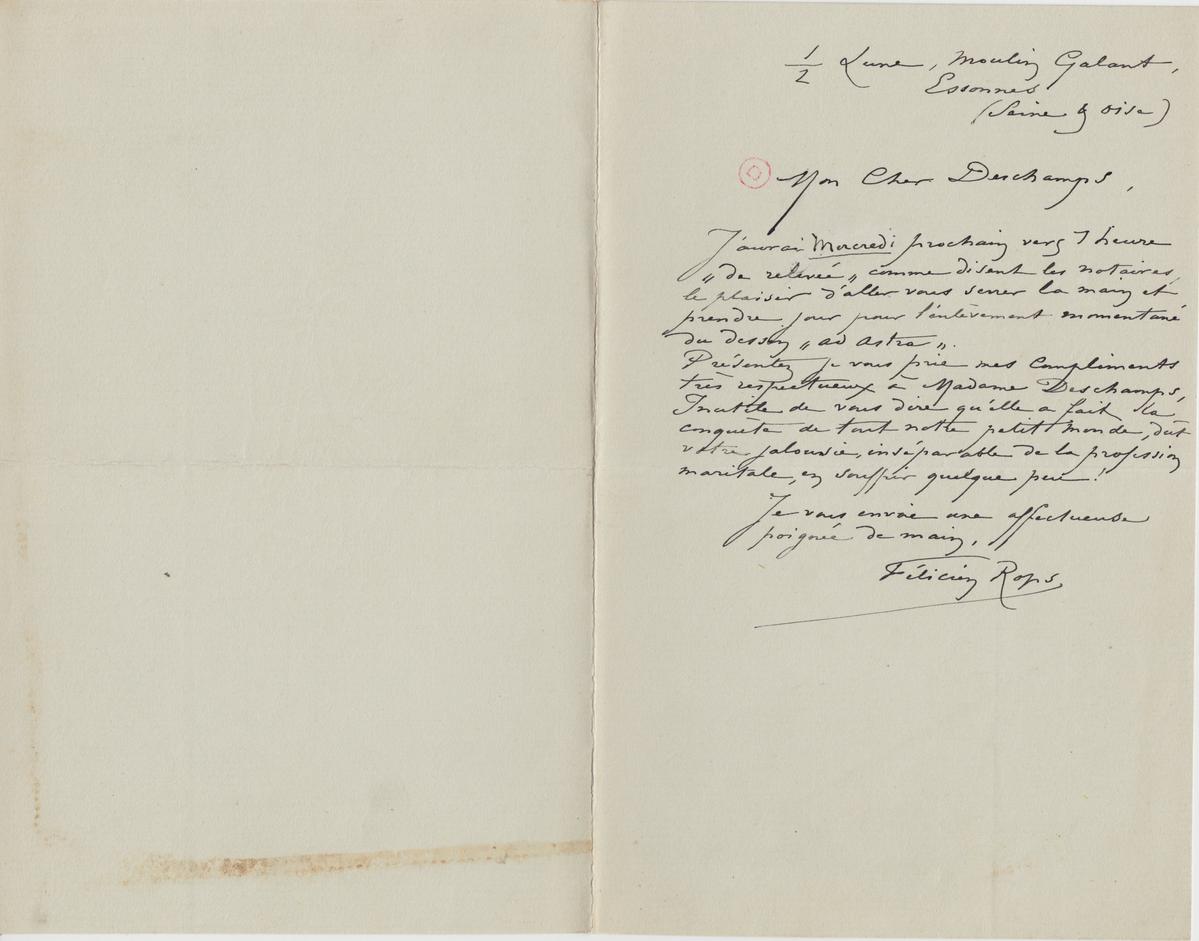 1/2 Lune, Moulin Galant,
Essonnes
(Seine & Oise)
Mon Cher Deschamps,
J'aurai Mercredi prochain vers 1 heure
„ de relevée „ comme disent les notaires,
le plaisir d'aller vous serrer la main et
prendre jour pour l'enlèvement momentané
du dessin „ ad Astra „.
Présentez je vous prie mes compliments
très respectueux à Madame Deschamps,
Inutile de vous dire qu'elle a fait la
conquête de tout notre petit monde, dût
votre jalousie, inséparable de la profession
maritale, en souffrir quelque peu !
Je vous envoie une affectueuse
poignée de main,
Félicien Rops